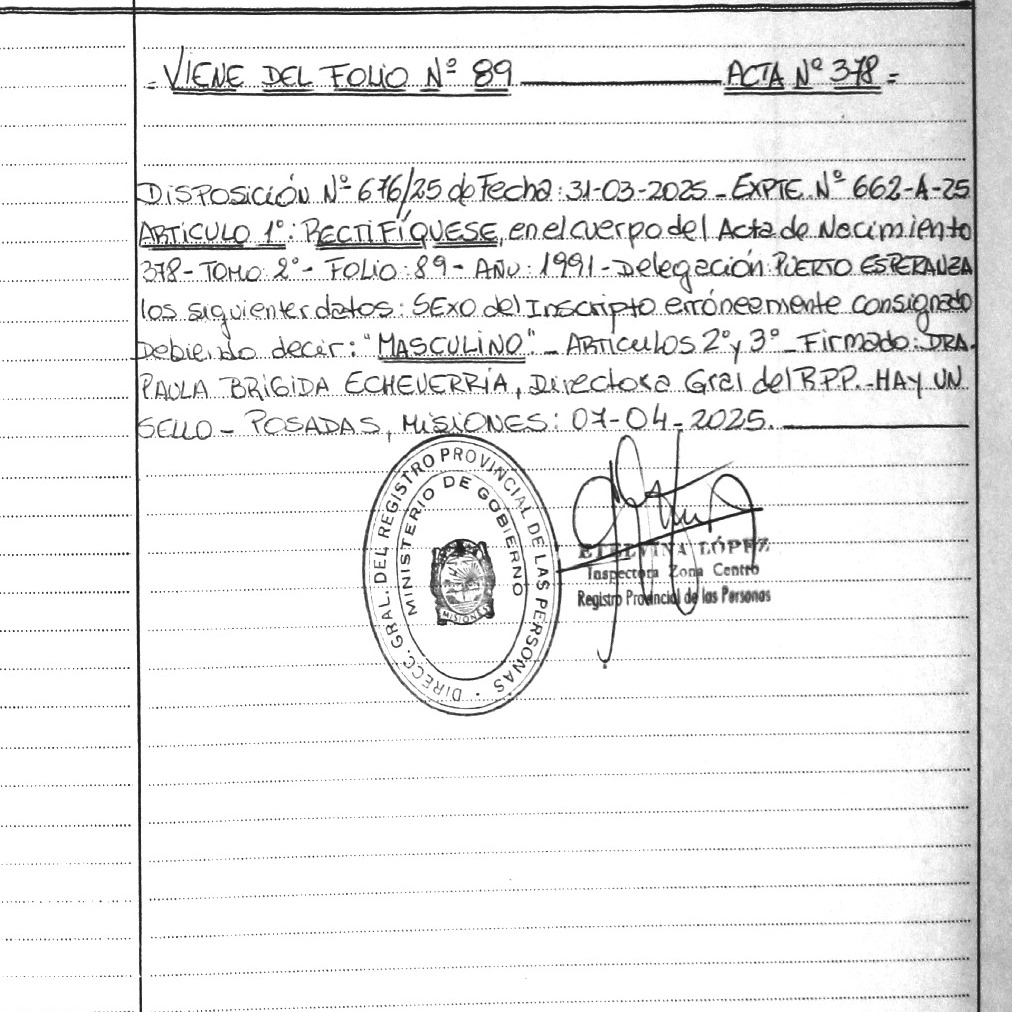 = VIENE DEL FOLIO Nº 89 ACTA Nº 378 =
DISPOSICIÓN Nº 676/25 de Fecha: 31-03-2025 - EXPTE. Nº 662-A-25
ARTICULO 1º: RECTIFÍQUESE, en el cuerpo del Acta de Nacimiento
378 - TOMO: 2º - FOLIO: 89 - AÑO: 1991 - Delegación: PUERTO ESPERANZA
los siguientes datos: SEXO del Inscripto erróneamente consignado
Debiendo decir: "MASCULINO" - ARTICULOS 2º y 3º - Firmado: DRA.
PAULA BRIGIDA ECHEVERRÍA, Directora Gral del R.P.P. - HAY UN
SELLO - POSADAS, MISIONES: 07-04-2025.
DIRECC. GRAL. DEL REGISTRO PROVINCIAL DE LAS PERSONAS
MINISTERIO DE GOBIERNO
MISIONES
ETELVINA LÓPEZ
Inspectora Zona Centro
Registro Provincial de las Personas